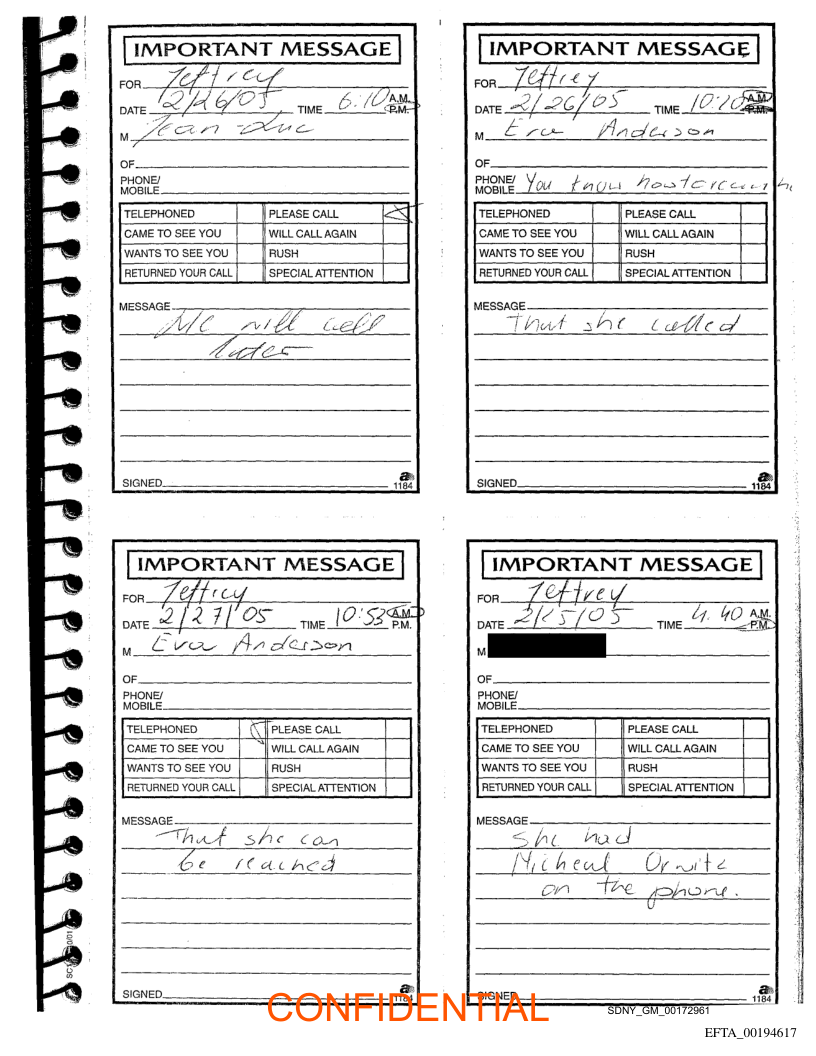 IMPORTANT MESSAGE
FOR Jeffrey
DATE 2/26/05 TIME 6:10 A.M.
P.M.
M Jean-Luc
OF
PHONE/
MOBILE
TELEPHONED PLEASE CALL
CAME TO SEE YOU WILL CALL AGAIN
WANTS TO SEE YOU RUSH
RETURNED YOUR CALL SPECIAL ATTENTION
MESSAGE
will call
later
SIGNED
1184
IMPORTANT MESSAGE
FOR Jeffrey
DATE 2/26/05 TIME 10:20 A.M.
P.M.
M Eva Anderson
OF
PHONE/
MOBILE You know how to
TELEPHONED PLEASE CALL
CAME TO SEE YOU WILL CALL AGAIN
WANTS TO SEE YOU RUSH
RETURNED YOUR CALL SPECIAL ATTENTION
MESSAGE
That she called
SIGNED
1184
IMPORTANT MESSAGE
FOR Jeffrey
DATE 2/27/05 TIME 10:53 A.M.
P.M.
M Eva Anderson
OF
PHONE/
MOBILE
TELEPHONED PLEASE CALL
CAME TO SEE YOU WILL CALL AGAIN
WANTS TO SEE YOU RUSH
RETURNED YOUR CALL SPECIAL ATTENTION
MESSAGE
That she can
be reached
SIGNED
1184
IMPORTANT MESSAGE
FOR Jeffrey
DATE 2/25/05 TIME 4.40 A.M.
P.M.
M
OF
PHONE/
MOBILE
TELEPHONED PLEASE CALL
CAME TO SEE YOU WILL CALL AGAIN
WANTS TO SEE YOU RUSH
RETURNED YOUR CALL SPECIAL ATTENTION
MESSAGE
She had
Micheal
on the phone.
SIGNED
1184
CONFIDENTIAL
SDNY_GM_00172961
EFTA_00194617